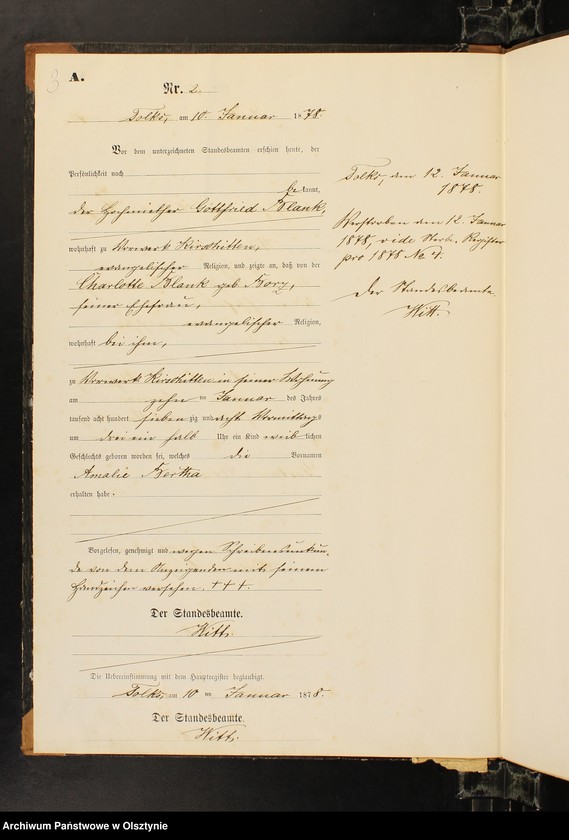 3
A.
Nr. 2.
Tolks, am 10. Januar 1878.
Vor dem unterzeichneten Standesbeamten erschien heute, der
Persönlichkeit nach
bekannt,
der Hochmiether Gottfried Blank,
wohnhaft zu Vorwerk Kirschitten,
evangelischer Religion, und zeigte an, daß von der
Charlotte Blank geb. Borz,
seiner Ehefrau,
evangelischer Religion,
wohnhaft bei ihm,
zu Vorwerk Kirschitten in seiner Wohnung
am zehn ten Januar des Jahres
tausend acht hundert sieben zig und acht Vormittags
um drei ein halb Uhr ein Kind weib lichen
Geschlechts geboren worden sei, welches die Vornamen
Amalie Bertha
erhalten habe.
Vorgelesen, genehmigt und wegen Schreibensunkun-
de von dem Anzeigenden mit seinem
Handzeichen versehen. +++.
Der Standesbeamte.
Witt.
Die Uebereinstimmung mit dem Hauptregister beglaubigt.
Tolks, am 10 ten Januar 1878.
Der Standesbeamte.
Witt.
Tolks, den 12. Januar
1878.
Verstorben den 12. Januar
1878, vide Sterbe-Register
pro 1878 No 4.
Der Standesbeamte.
Witt.
Archiwum Państwowe w Olsztynie